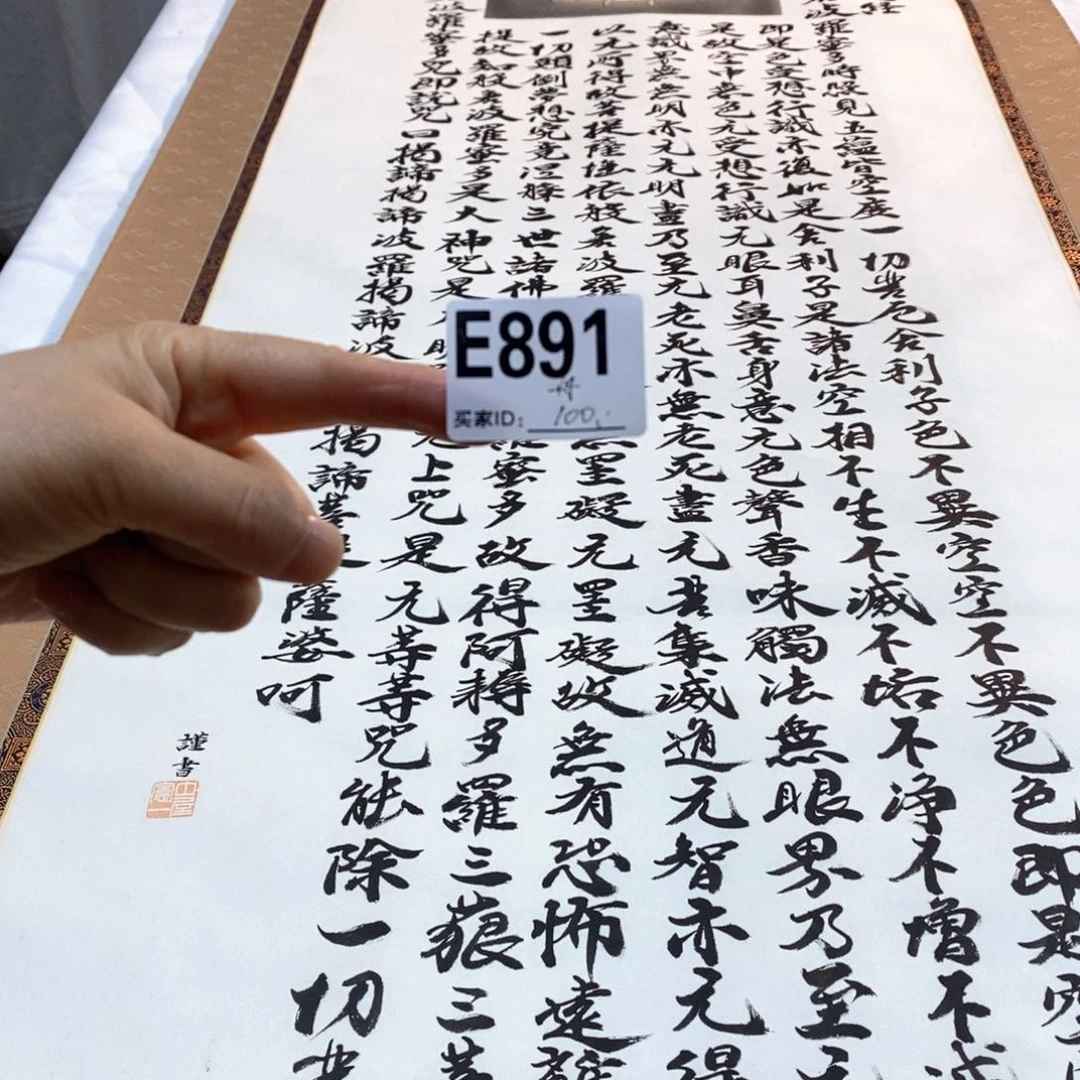 經
波羅蜜多時照見五蘊皆空度一切苦厄舍利子色不異空空不異色色即是空
即是色受想行識亦復如是舍利子是諸法空相不生不滅不垢不净不增不減
是故空中無色无受想行識无眼耳鼻舌身意无色聲香味觸法無眼界乃至无
意識界無無明亦无无明盡乃至无老死亦無老死盡无苦集滅道无智亦无得
以无所得故菩提薩埵依般若波羅 罣礙无罣礙故無有恐怖遠離
一切顛倒夢想究竟涅槃三世諸佛 羅蜜多故得阿耨多羅三藐三菩
提故知般若波羅蜜多是大神咒是 上咒是元等等咒能除一切苦
波羅蜜多咒即說咒曰揭諦揭諦波羅揭諦波 揭諦菩提薩婆呵
謹書
E891
买家ID: 100